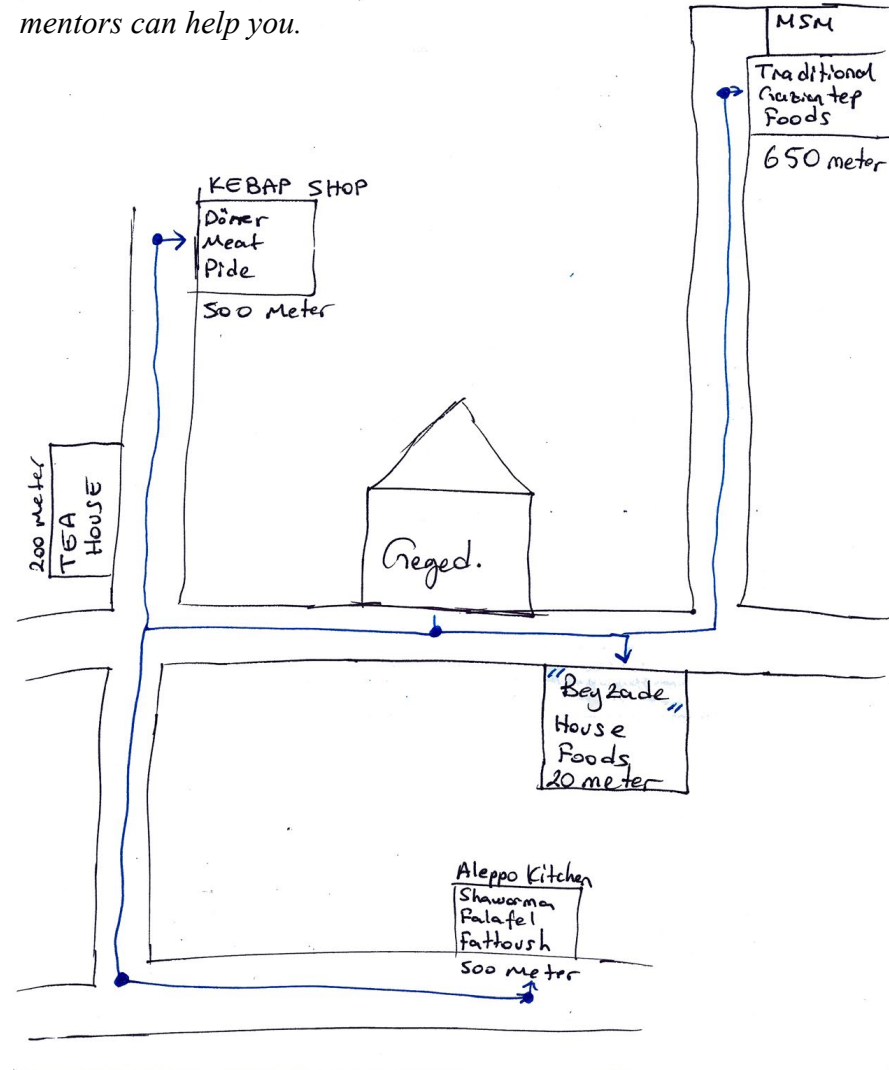 mentors can help you.
MSM
Traditional
Gaziantep
Foods
650 meter
KEBAP SHOP
Döner
Meat
Pide
500 Meter
200 meter
TEA
HOUSE
Geged.
"Beyzade"
House
Foods
20 meter
Aleppo Kitchen
Shawarma
Falafel
Fattoush
500 Meter